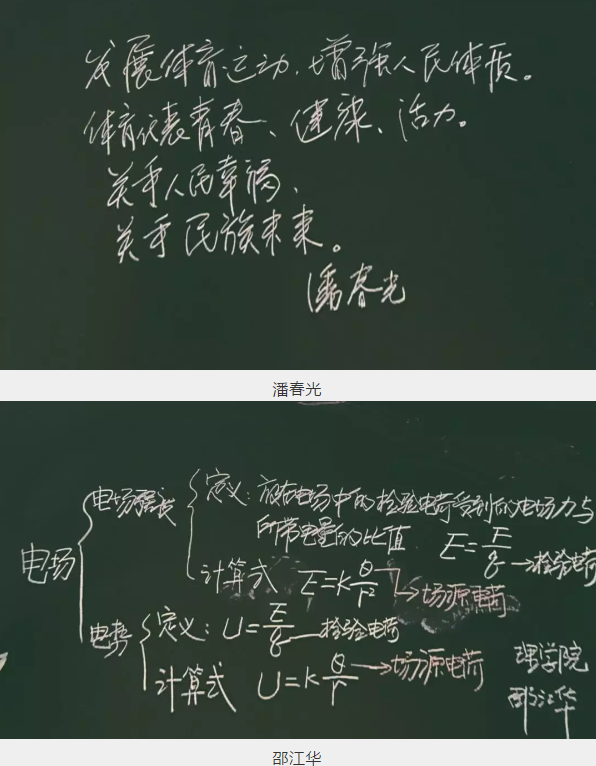 发展体育运动,增强人民体质。
体育代表青春、健康、活力。
关乎人民幸福、
关乎民族未来。
潘春光
潘春光
电场
电场强度
定义:放在电场中的检验电荷受到的电场力与
所带电量的比值
E=F/q →检验电荷
计算式 E=K Q/r² →场源电荷
电势
定义:U=E/q →检验电荷
计算式 U=K Q/r →场源电荷
理学院
邵江华
邵江华